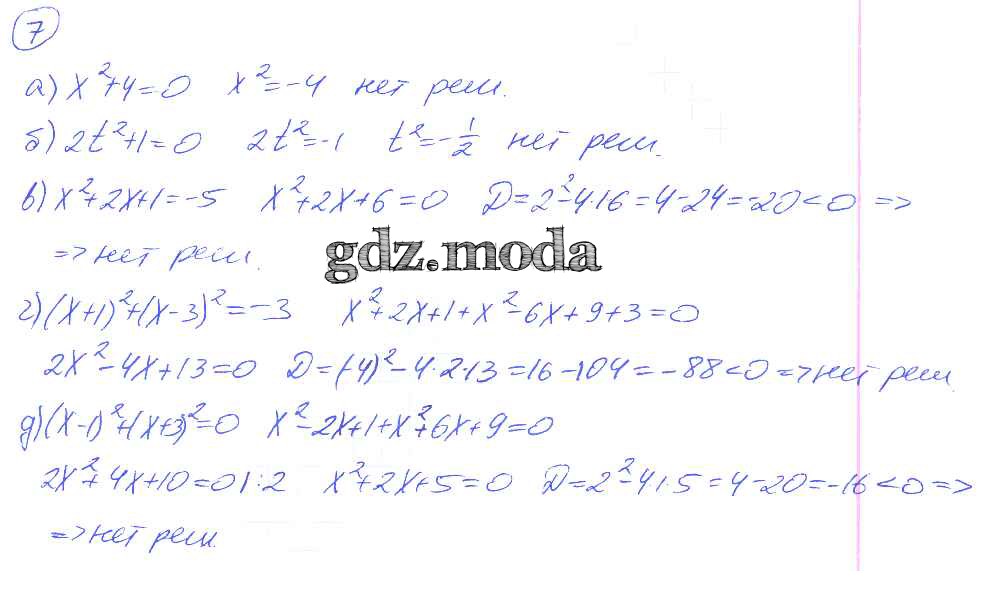 7
а) x²+4=0 x²=-4 нет реш.
б) 2t²+1=0 2t²=-1 t²=-1/2 нет реш.
в) x²+2x+1=-5 x²+2x+6=0 D=2²-4·6=4-24=-20<0 =>
=> нет реш.
gdz.moda
г) (x+1)²+(x-3)²=-3 x²+2x+1+x²-6x+9+3=0
2x²-4x+13=0 D=(-4)²-4·2·13=16-104=-88<0 => нет реш.
д) (x-1)²+(x+3)²=0 x²-2x+1+x²+6x+9=0
2x²+4x+10=0 |:2 x²+2x+5=0 D=2²-4·5=4-20=-16<0 =>
=> нет реш.